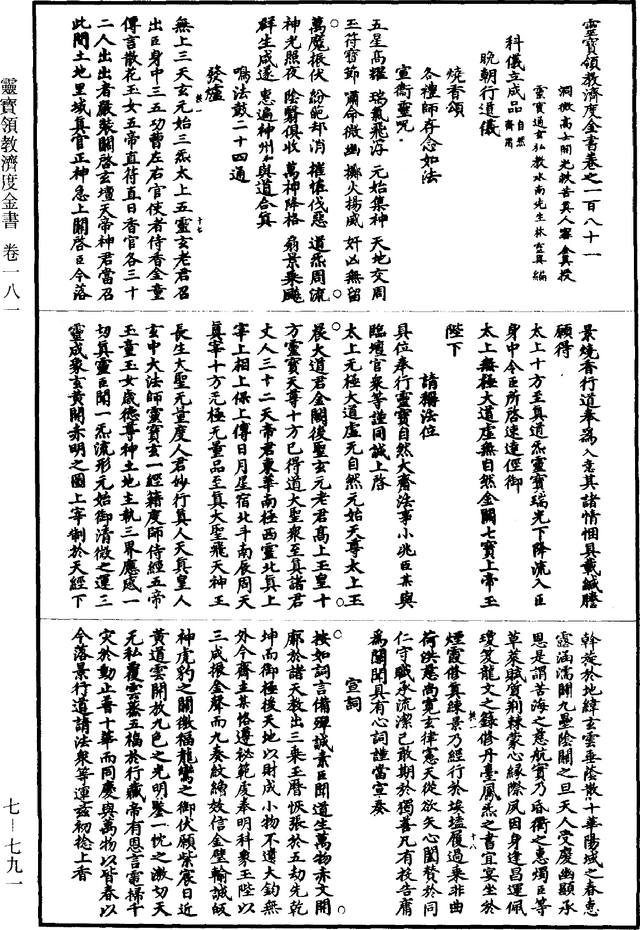 靈寶領教濟度金書卷之一百八十一
洞微高士開光救苦真人甯全真授
靈寶通玄弘教水南先生林靈真編
科儀立成品自然齋用
晚朝行道儀
燒香頌
各種師存念如法
宣衛靈呪
五星高耀 瑞氣飛浮 元始集神 天地交周
玉符寶節 嘯命微幽 擲火揚威 奸凶無留
萬魔振伏 紛葩却消 摧懾伐惡 道炁周流
神光照夜 陰翳俱收 萬神降格 飛景乘飈
群生咸遂 惠遍神州 與道合真
鳴法鼓二十四通
發爐
無上三天玄元始三炁太上五靈玄老君召
出臣身中三五功曹左右官使者侍香金童
傳言散花玉女五帝直符直日香官各三十
二人出出者嚴裝關啓玄壇天帝神君當召
此間土地里域真官正神急上關啓臣今落
景燒香行道奉為入意其諸情悃具載緘謄
願得
太上十方至真道炁靈寶瑞光下降流入臣
身中令臣所啓速達徑御
太上無極大道虛無自然金闕七寶上帝玉
陛下
請稱法位
具位奉行靈寶自然大齋法事小兆臣某與
臨壇官衆等謹同誠上啓
太上无極大道虛无自然元始天尊太上玉
晨大道君金闕後聖玄元老君高上玉皇十
方靈寶天尊十方已得道大聖衆至真諸君
丈人三十二天帝君東華南極西靈北真上
宰上相上保上傅日月星宿北斗南辰周天
真宰十方无極无量品至真大聖飛天神王
長生大聖无量度人君妙行真人天真皇人
玄中大法師靈寶玄一經籍度師侍經五帝
玉童玉女歲德尊神土地主執三界應感一
切真靈臣聞一炁流形元始御清微之運三
靈成象玄黃開赤明之圖上宰制於天經下
斡旋於地緯玄雲垂蔭散十華陽域之春惠
露涵濡闢九壘陰關之旦天人受慶幽顯承
恩是謂苦海之慈航實乃昏衢之惠燭臣等
草萊賦質荆棘蒙心緣際夙因身逢昌運佩
瓊笈龍文之籙修丹臺鳳炁之書宜宴坐於
煙霞修真鍊景乃經行於埃𡏖履過乘非曲
荷洪慈尚寛玄律憲天從欲矢心闡賛於同
仁守職承流潔己敢期於獨善凡有投告庸
為關聞具有心詞謹當宣奏
宣詞
按如詞言備殫誠素臣聞道生萬物赤文開
廓於諸天教出三乘玉曆恢張於五劫先乾
坤而御極後天地以財成小物不遺大鈞無
外今齋主某恪遵祕範虔奉明科象王陛以
三成振金聲而九奏紋繒效信金璧輸誠皈
神虎豹之關徼福龍鸞之御伏願紫宸日近
黃道雲開放九色之光明鑒一忱之激切天
元私覆雲蓋五福於行藏帝有恩言電掃千
灾於動止普十華而同慶與萬物以皆春以
今落景行道請法衆等運茲初捻上香
靈寶領教濟度金書 卷一八一
七—七九一